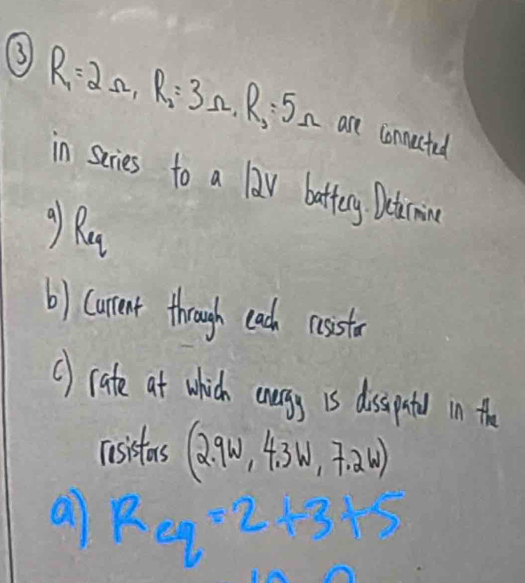 ③ R₁=2Ω, R₂=3Ω, R₃=5Ω are connected
in series to a 12V battery. Determine
a) Req
b) Current through each resistor
c) rate at which energy is dissipated in the
resistors (2.9W, 4.3W, 7.2W)
a) Req=2+3+5